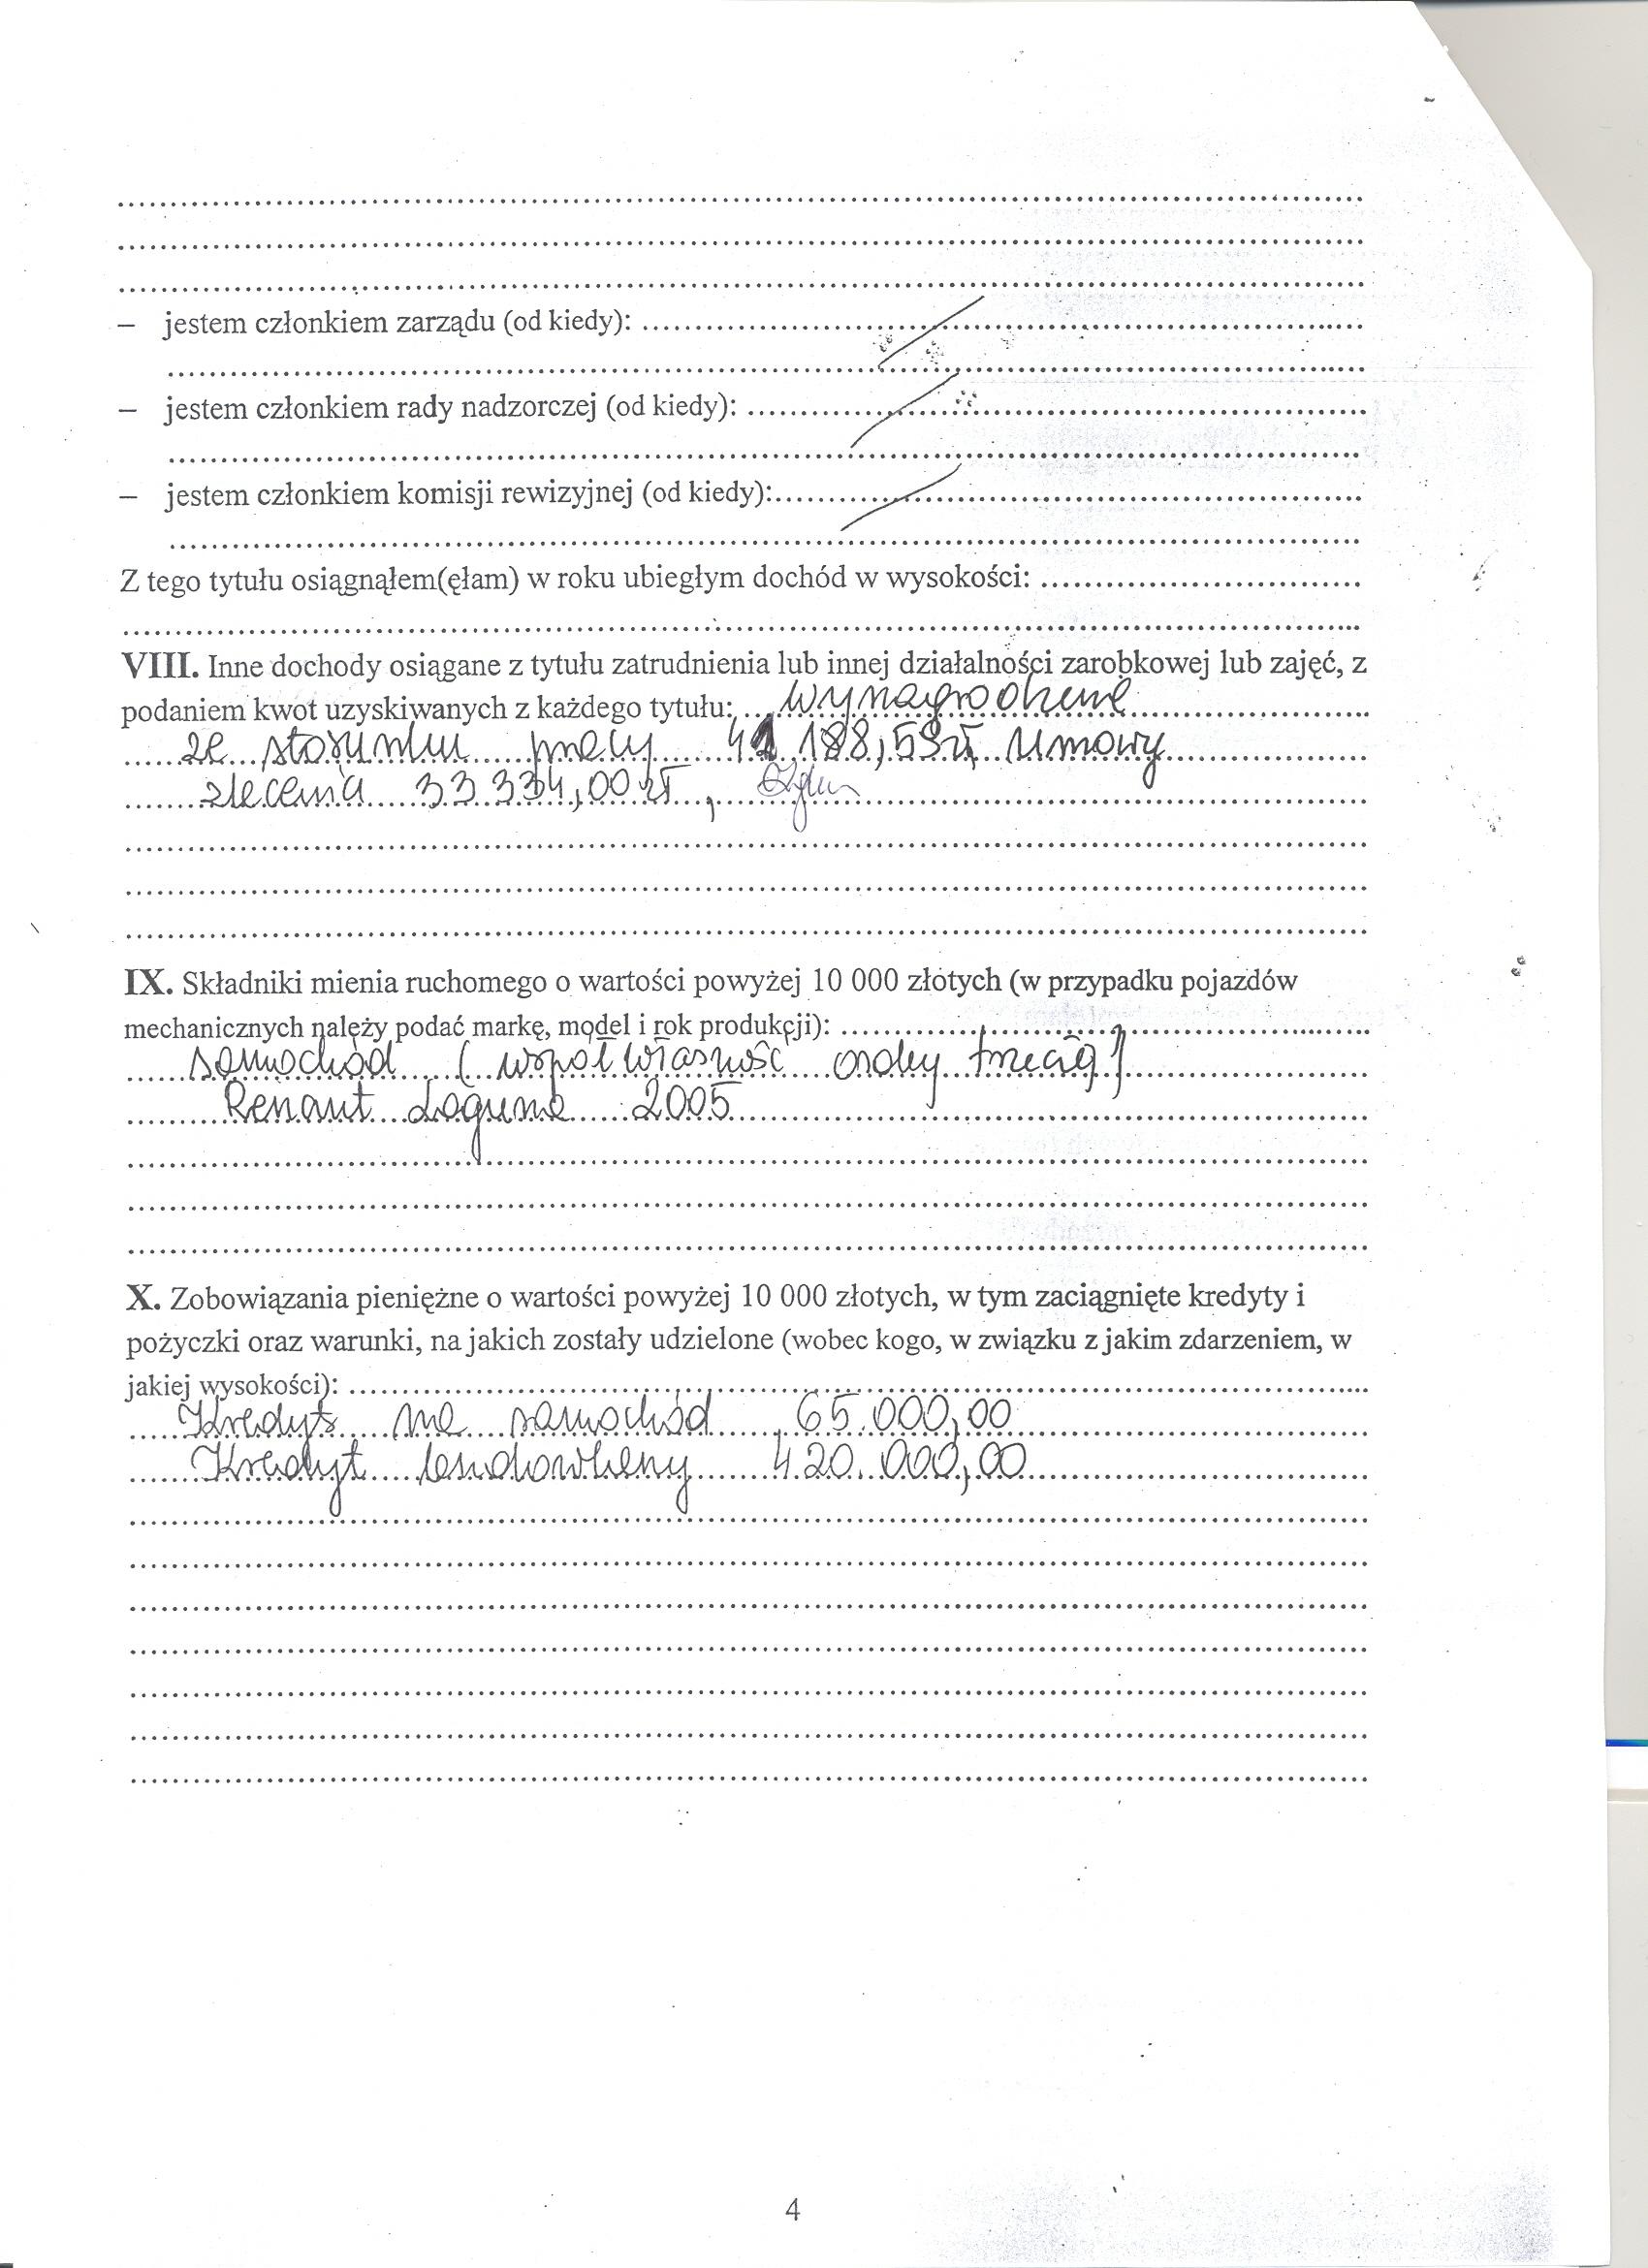 – jestem członkiem zarządu (od kiedy): ....................
– jestem członkiem rady nadzorczej (od kiedy): ....................
– jestem członkiem komisji rewizyjnej (od kiedy):....................
Z tego tytułu osiągnąłem(ęłam) w roku ubiegłym dochód w wysokości: ....................
VIII. Inne dochody osiągane z tytułu zatrudnienia lub innej działalności zarobkowej lub zajęć, z
podaniem kwot uzyskiwanych z każdego tytułu: wynagrodzenie
ze stosunku pracy 41 188,59 zł, umowy
zlecenia 33 334,00 zł,
IX. Składniki mienia ruchomego o wartości powyżej 10 000 złotych (w przypadku pojazdów
mechanicznych należy podać markę, model i rok produkcji): ....................
samochód (współwłasność osoby trzeciej)
Renaut Laguna 2005
X. Zobowiązania pieniężne o wartości powyżej 10 000 złotych, w tym zaciągnięte kredyty i
pożyczki oraz warunki, na jakich zostały udzielone (wobec kogo, w związku z jakim zdarzeniem, w
jakiej wysokości): ....................
Kredyt na samochód 65.000,00
Kredyt 420.000,00
4